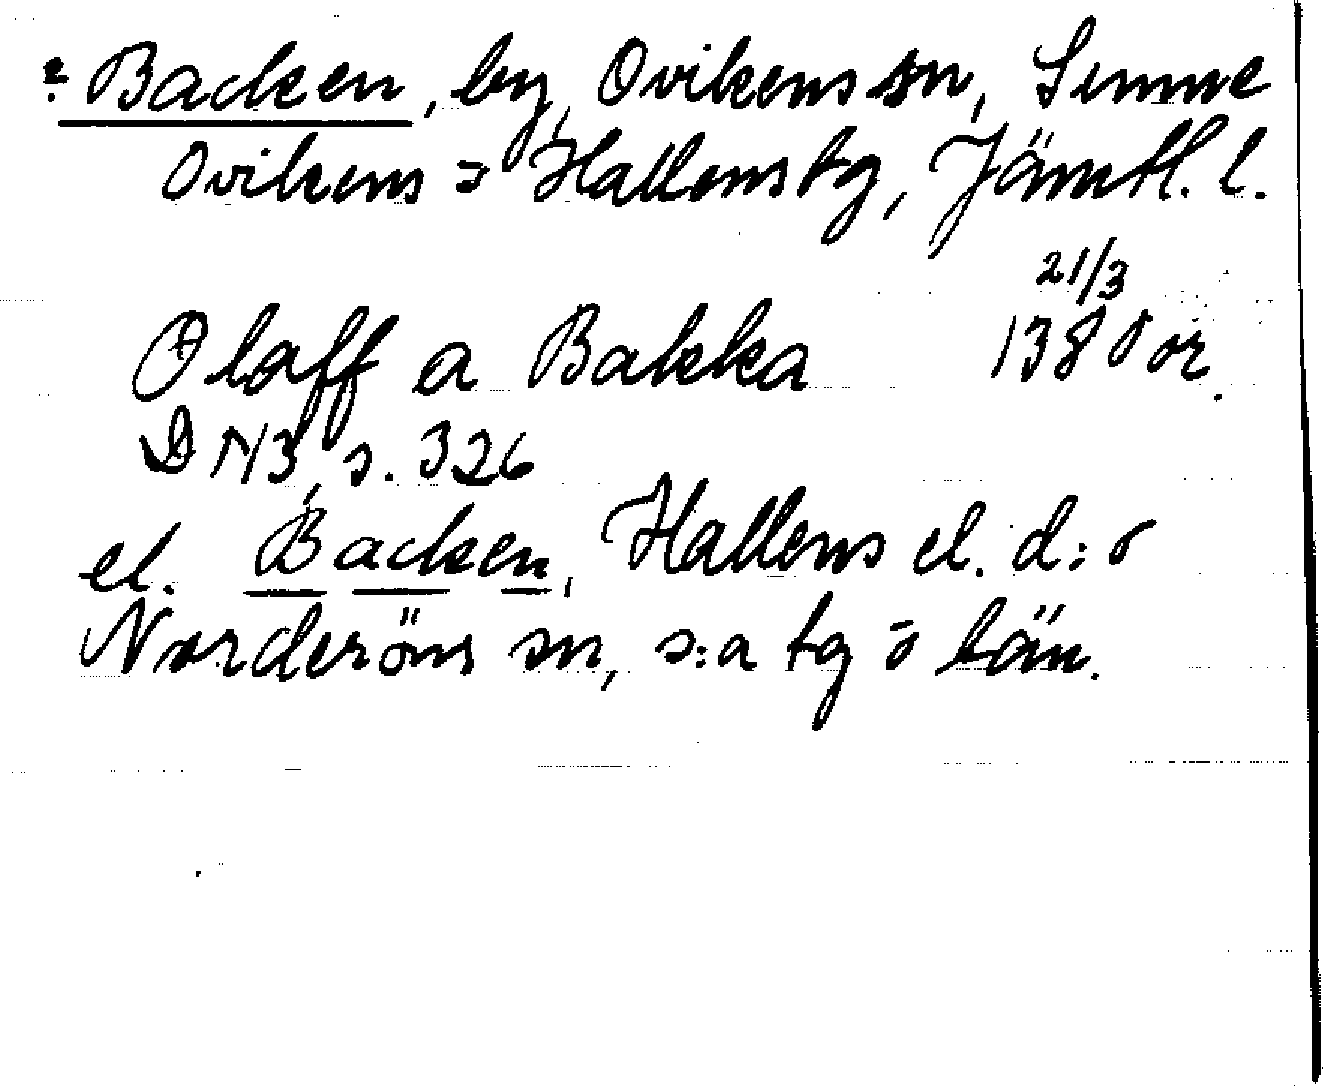 ? Backen, by, Ovikens sn, Sunne
Ovikens = Hallens tg, Jämtl. l.
21/3
Olaff a Bakka 1380 or.
DN3, s. 326
el. Backen, Hallens el. d:o
Norderöns sn, s:a tg o län.